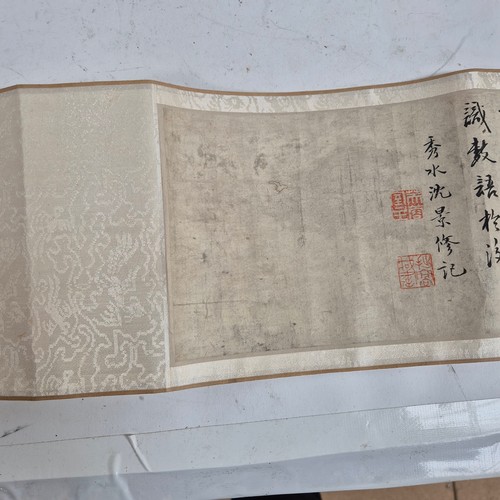 識數語於後
秀水沈景修記